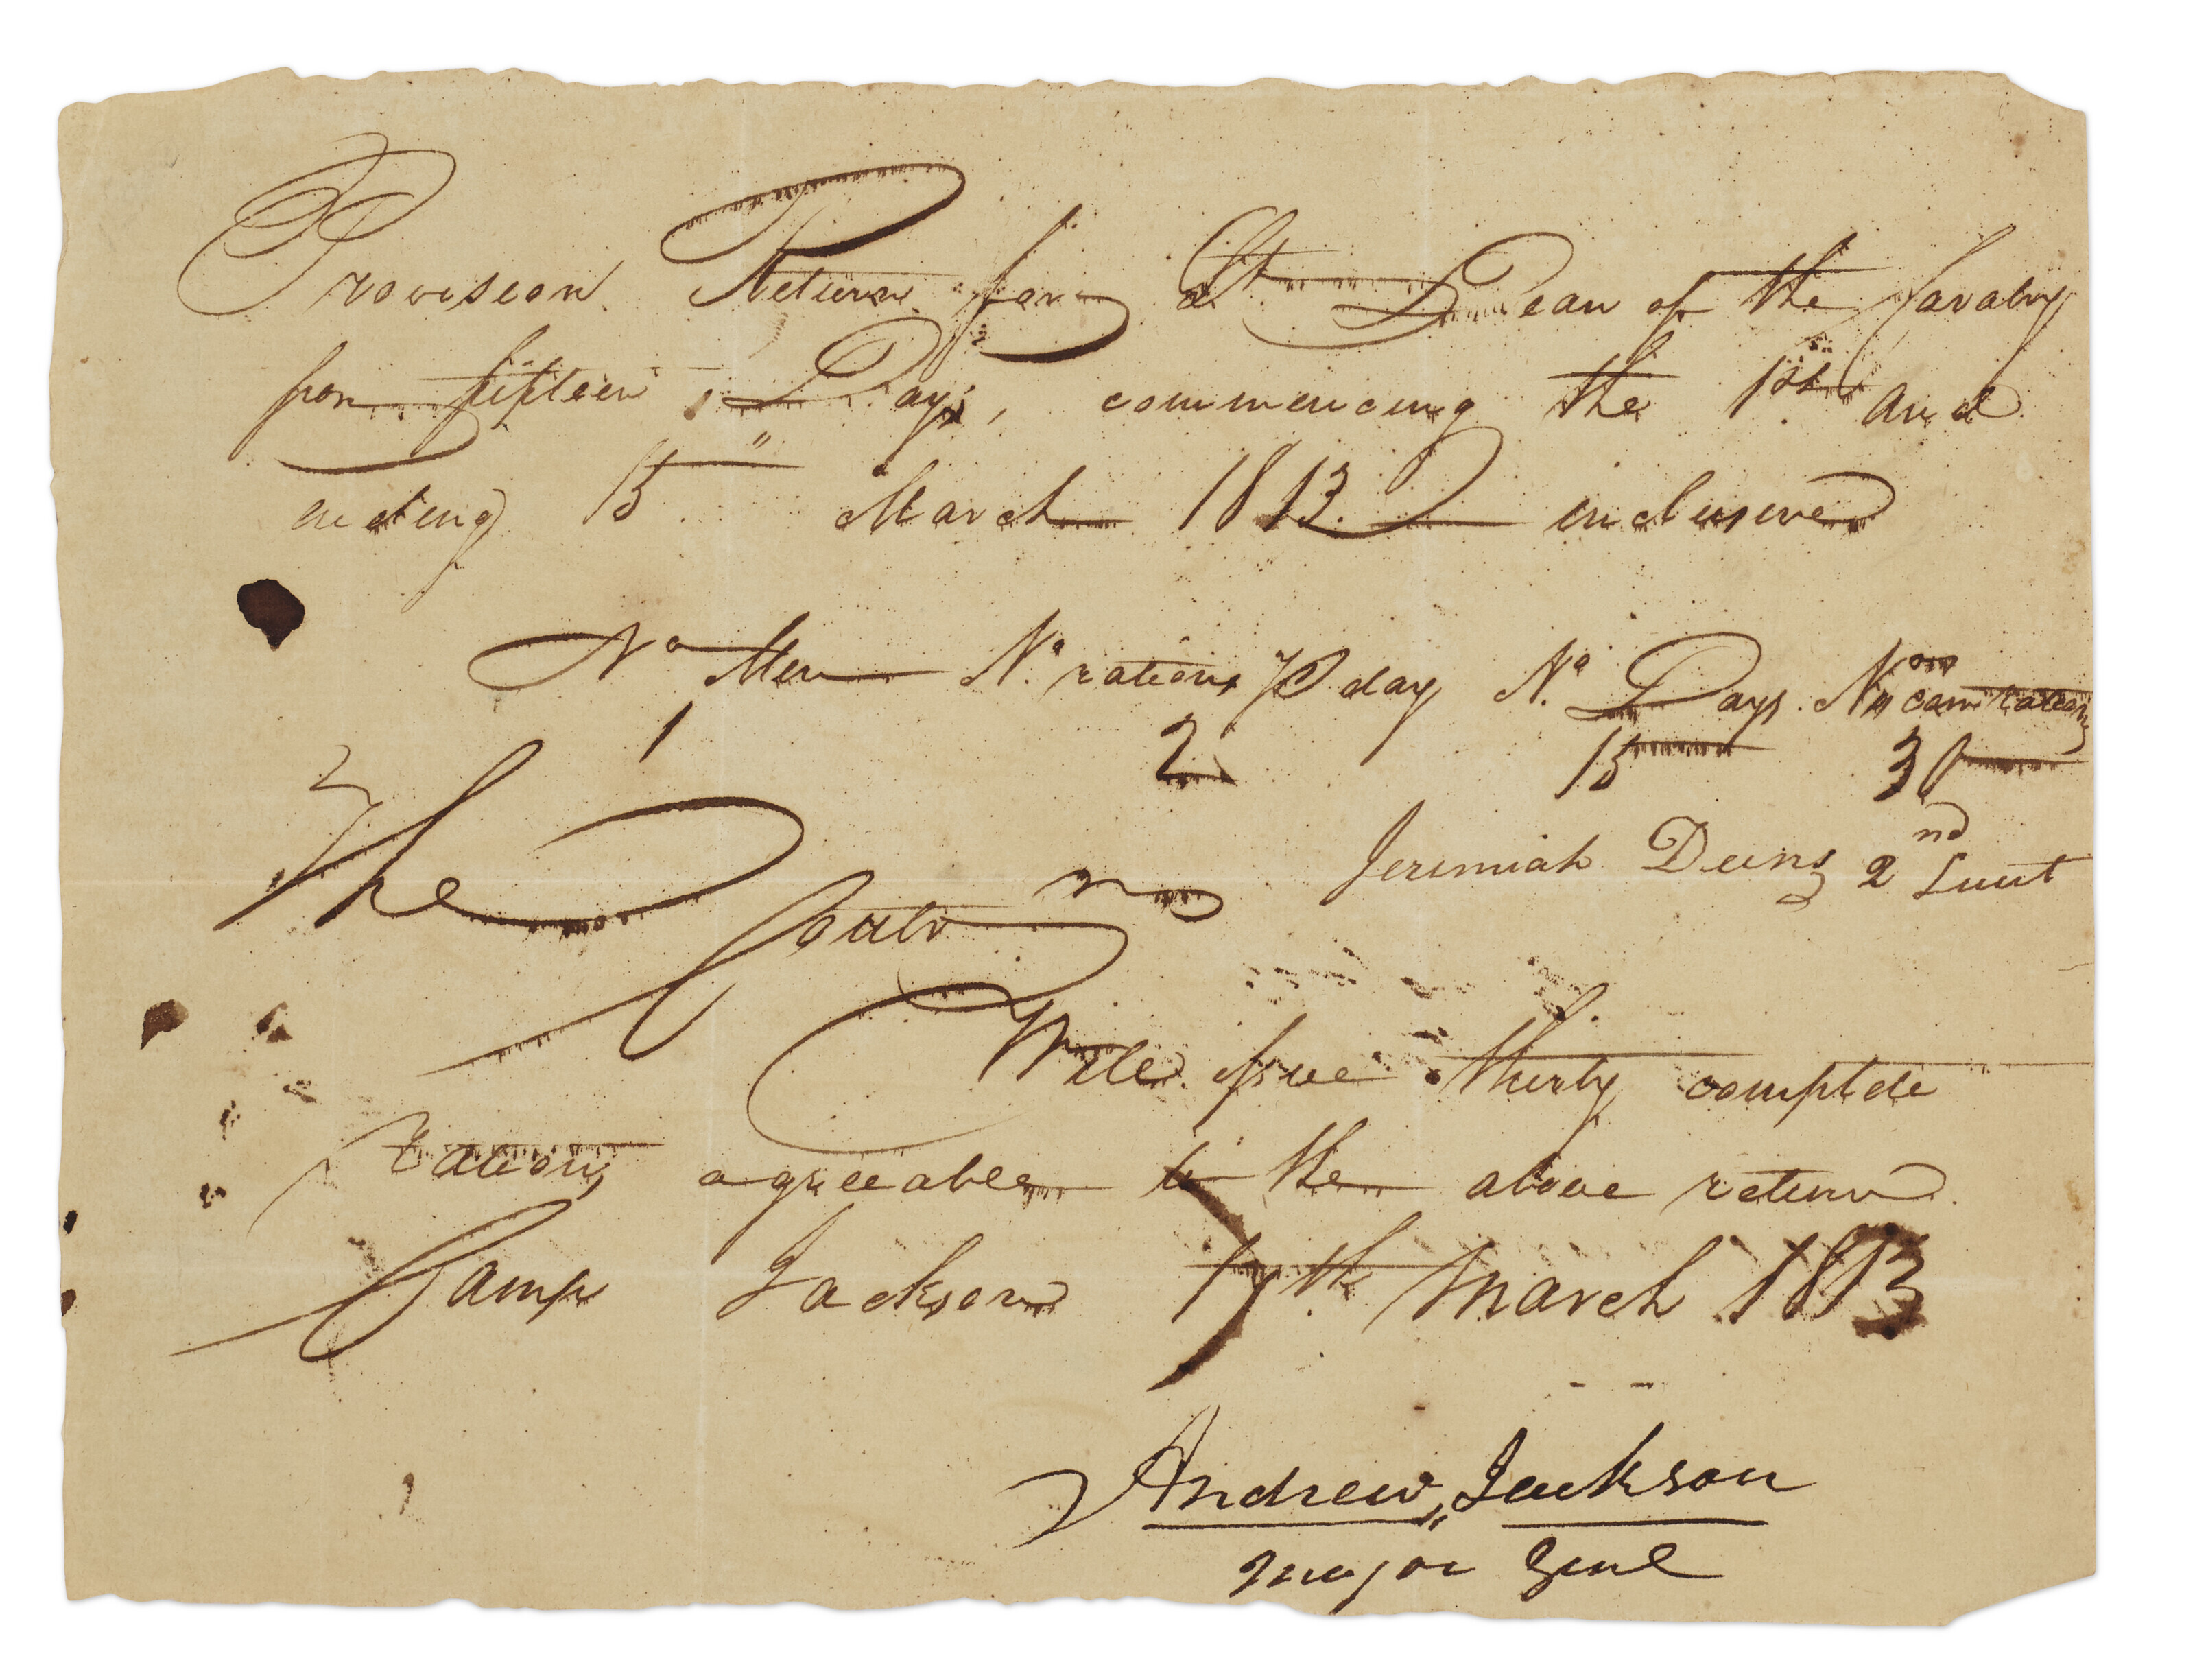 Provision Return for Lt Dean of the Cavalry
for fifteen Days, commencing the 1st and
ending 15" March 1813. inclusive
No Men No. rations P day No. Days No com rations
1 2 15 30
Jeremiah Deens 2nd Lieut
The Contr
Will issue thirty complete
rations agreeable to the above return
Camp Jackson 17th March 1813
Andrew Jackson
Major Genl